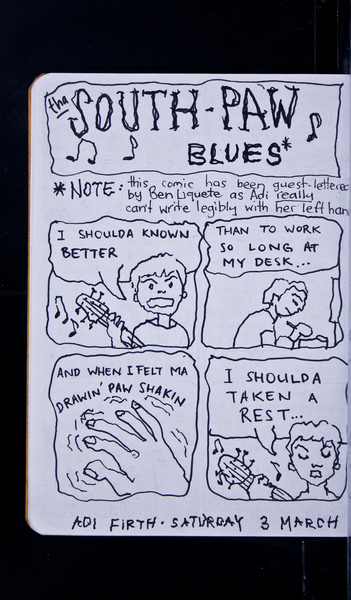 tha
SOUTH-PAW
BLUES*
*NOTE: this comic has been guest-lettered
by Ben Liquete as Adi really
can't write legibly with her left han
I SHOULDA KNOWN
BETTER
THAN TO WORK
SO LONG AT
MY DESK...
AND WHEN I FELT MA
DRAWIN' PAW SHAKIN
I SHOULDA
TAKEN A
REST...
ADI FIRTH · SATURDAY 3 MARCH